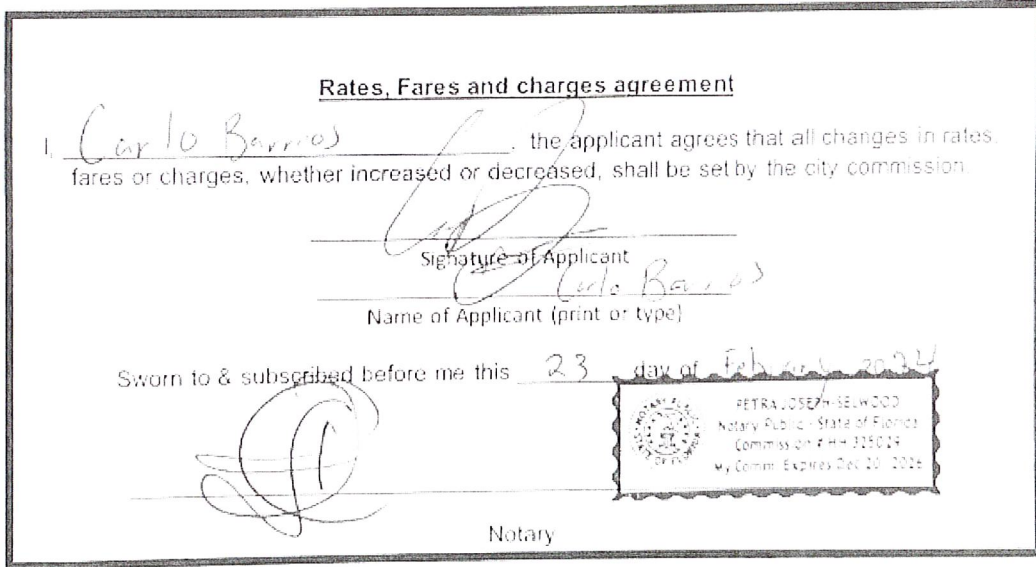 Rates, Fares and charges agreement
I, Carlo Barrios, the applicant agrees that all changes in rates,
fares or charges, whether increased or decreased, shall be set by the city commission.
Signature of Applicant
Carlo Barrios
Name of Applicant (print or type)
Sworn to & subscribed before me this 23 day of February 2024
PETRA JOSEPH-SELWOOD
Notary Public - State of Florida
Commission # HH 325029
My Comm. Expires Dec 20, 2026
Notary